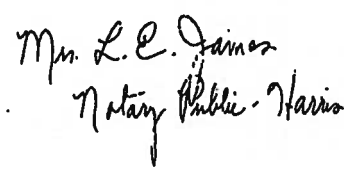 Mrs. L. E. James
Notary Public - Harris